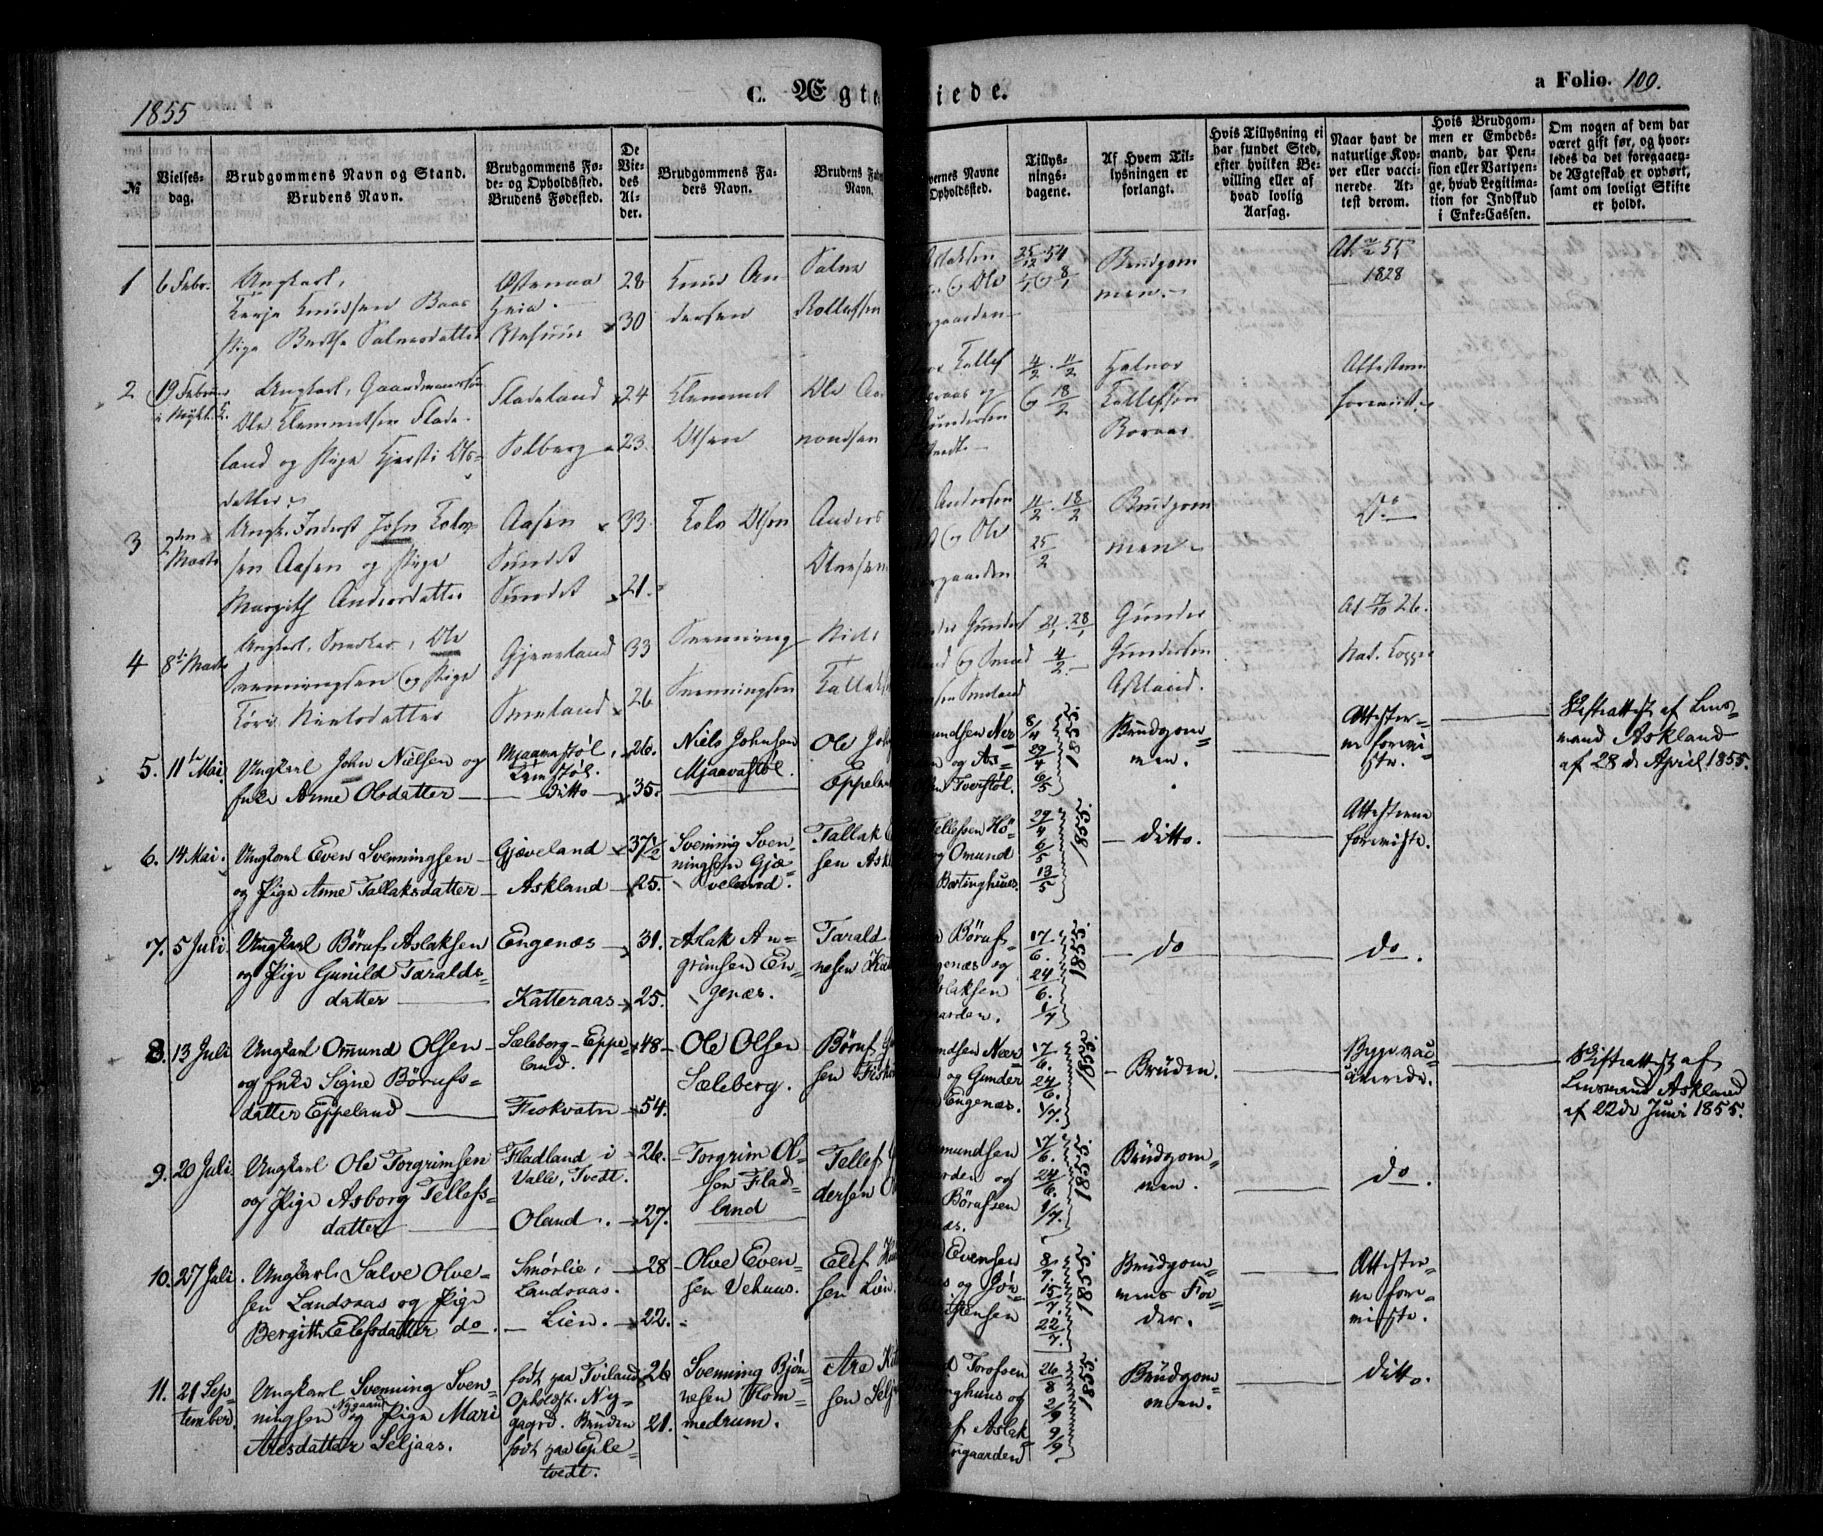 1855
C. Ægte
iede.
a Folio. 109.
№
Vielses-
dag.
Brudgommens Navn og Stand.
Brudens Navn.
Brudgommens Fø-
de- og Opholdssted.
Brudens Fødested.
De
Vie-
des
Al-
der.
Brudgommens Fa-
ders Navn.
Brudens Fad
Navn.
vernes Navne
Opholdssted.
Tillys-
nings-
dagene.
Af Hvem Til-
lysningen er
forlangt.
Hvis Tillysning ei
har fundet Sted,
efter hvilken Be-
villing eller af
hvad lovlig
Aarsag.
Naar havt de
naturlige Kop-
per eller vacci-
nerede. At-
test derom.
Hvis Brudgom-
men er Embeds-
mand, har Pen-
sion eller Vartpen-
ge, hvad Legitima-
tion for Indskud
i Enke-Cassen.
Om nogen af dem har
været gift før, og hvor-
ledes da det foregaaen-
de Ægteskab er ophørt,
samt om lovligt Skifte
er holdt.
1
6 Febr.
Ungkarl,
Terje Knudsen Baas
Pige Berthe Salvesdatter
Østenaa
Heia
28
30
Knud An
dersen
Salve
Rollefsen
25/12 54
Brudgom
men.
1828
2
19 Februar
i Mykl. K.
Ungkarl, Gaardmandssøn
Ole Clemmetsen Flade-
land og Pige Kjersti Ols-
datter
Fladeland
Solberg
24
23.
Clemmet
Olsen
Ole Aa
nondsen
4/2. 11/2
18/2
Halvor
Tellefsen
Boraas
Attesterne
foreviist
3
2den
Marts
Ungk. Inderst John Tolv-
sen Aasen og Pige
Margith Andersdatter
Aasen
Sundet
Sundet
33.
21.
Tolv Olsen
Anders
Olsen
Andersen
og Ole
gaarden
11/2. 18/2
25/2
Brudgom
men
Do
4
8de Marts
Ungkarl, Snedker, Ole
Svenningsen og Pige
Tore Nielsdatter
Gjeveland
Smeland
33
26
Svenning
Svenningsen
Niels
Tallaks
21/1. 28/1
4/2.
Gunder
Gundersen
Askland.
At 17/10 26.
Nat. Kopper
5.
11te Mai
Ungkarl John Nielsen og
Enke Anne Olsdatter
Mjaavastøl,
Ditto
26.
35.
Niels Johnsen
Mjaavastøl.
Ole Joh
Eppeland
mundsen Ner-
n og As-
Tverstøl.
8/4
29/4
6/5
1855.
Brudgom-
men.
Attester-
ne forevi-
ste.
Skifteattest af Lens-
mand Askland
af 28 de April 1855.
6.
14 Mai.
Ungkarl Even Svenningsen
og Pige Anne Tallaksdatter
Gjæveland
Askland
37½
25.
Svenning Sven-
ningsen Gjæ-
veland.
Tallak
sen Ask
Tellefsen Hö-
og Omund
Børtinghuus.
29/4
6/5
13/5
1855.
ditto.
Attesterne
foreviste.
7.
5 Juli.
Ungkarl Børuf Aslaksen
og Pige Gunild Taralds-
datter
Engenæs
Katteraas
31.
25.
Aslak An-
grimsen En-
genæs.
Tarald
nesen Kat
Børufs-
genæs og
slaksen
arden.
17/6.
24/6.
1/7
1855.
do
do.
8.
13 Juli
Ungkarl Omund Olsen
og Enke Signe Børufs-
datter Eppeland
Sæleborg - Eppe-
land.
Fiskvatn
48
54.
Ole Olsen
Sæleberg.
Børuf
sen Fisk
mundsen Nær-
og Gunder
Engenæs.
17/6.
24/6.
1/7.
1855.
Bruden.
Begge vac-
cinerede.
Skifteattest af
Lensmand Askland
af 22de Juni 1855.
9.
20 Juli
Ungkarl Ole Torgrimsen
og Pige Asborg Tellefs-
datter
Fladland i
Valle, Tvedt.
Oland.
26.
27.
Torgrim Ol-
sen Flad-
land
Tellef
dersen O
mundsen
arden og
Børufsen
næs.
17/6.
24/6.
1/7.
1855.
Brudgom-
men.
do.
10.
27 Juli
Ungkarl Salve Olve-
sen Landsaas og Pige
Bergitte Elefsdatter do.
Smørlie,
Landsaas.
Lien.
28
22.
Olve Even-
sen Vehuus.
Elef
sen Lien.
Evensen
og Jör-
istensen
8/7.
15/7.
22/7.
1855.
Brudgom-
mens Fa-
der.
Attester-
ne fore-
viiste.
11.
21 Sep-
tember.
Ungkarl Svenning Sven-
ningsen Nygaard og Pige Mari
Aresdatter Seljaas.
født paa Tviland
Opholdst. Ny-
gaard. Bruden
født paa Eple-
tvedt.
26
21.
Svenning Bjøn-
nesen Hom-
medrum.
Are
sen Selj
Torofsen
nghuus og
f Aslak
rgaarden
26/8
2/9
9/9
1855.
Brudgom-
men.
ditto.